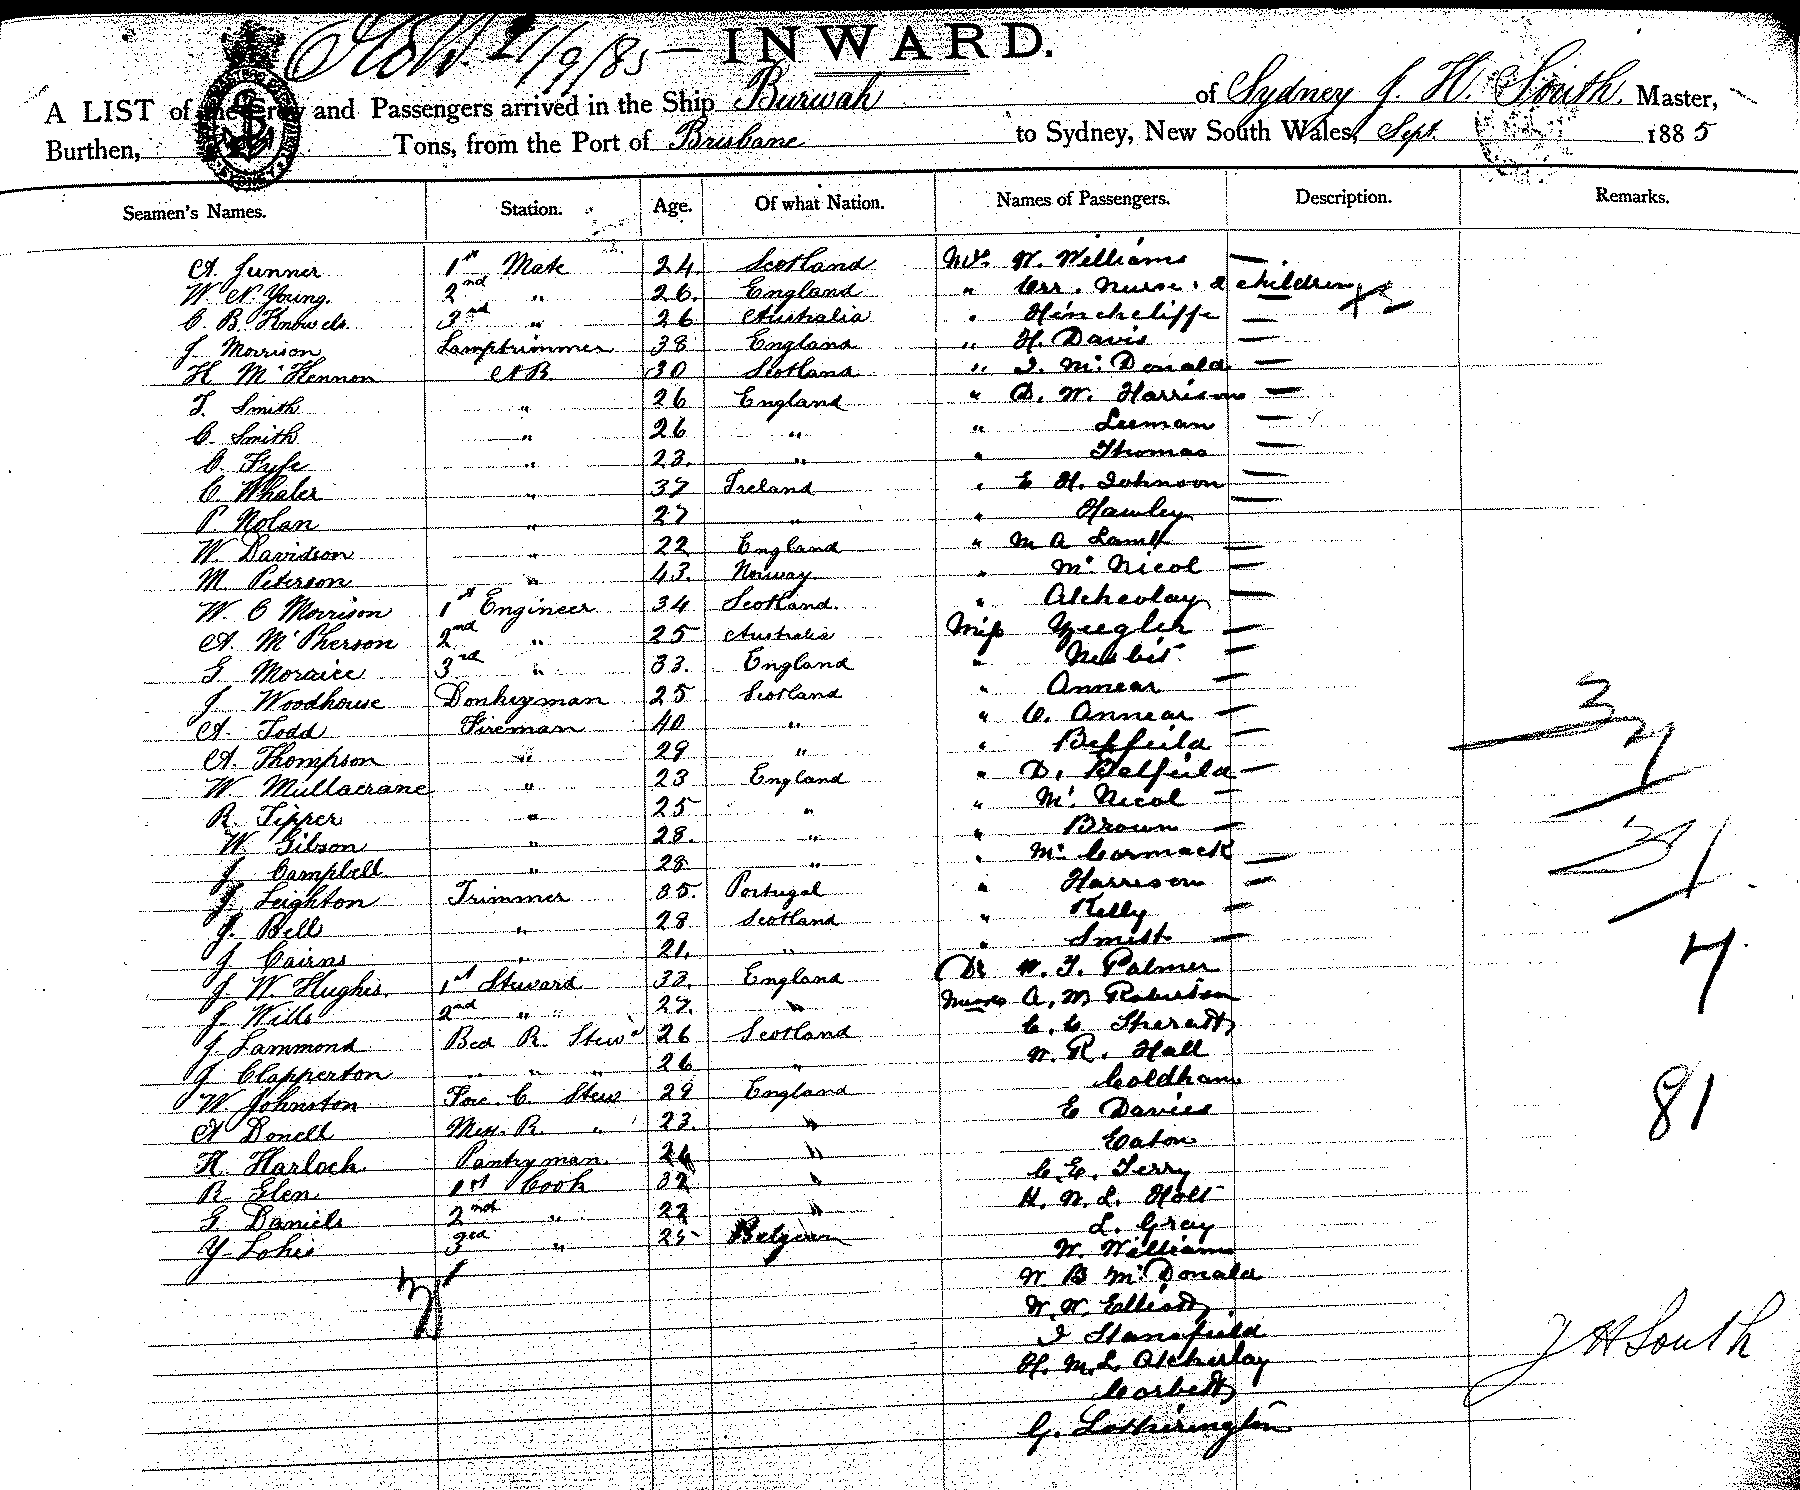 21/9/85 — INWARD.
A LIST of the Crew and Passengers arrived in the Ship Burwah of Sydney J. H. South. Master,
Burthen, Tons, from the Port of Brisbane to Sydney, New South Wales, Sept. 1885
Seamen's Names. Station. Age. Of what Nation. Names of Passengers. Description. Remarks.
A. Junner 1st Mate 24 Scotland Mrs. W. Williams —
W. N. Young. 2nd " 26. England " Orr. Nurse. 2 children
C. B. Knowels 3rd " 26 Australia " Hinchcliffe —
J. Morrison Lamptrimmer 38 England " H. Davis —
H McKennon AB 30 Scotland " J. McDonald —
T. Smith " 26 England " D. W. Harrison —
C. Smith " 26 " " Leeman —
C. Fyfe " 23. " " Thomas —
C. Whaler " 37 Ireland " E H. Johnson —
P. Nolan " 27 " " Hawley —
W. Davidson " 22 England " M A Lamb —
M. Peterson " 43. Norway " McNicol —
W. C Morrison 1st Engineer 34 Scotland. " Atcherlay —
A. McPherson 2nd " 25 Australia Miss Yeegler —
G Moraice 3rd " 33. England " Nesbit —
J Woodhouse Donkeyman 25 Scotland " Annear —
A. Todd Fireman 40 " " C. Annear —
A. Thompson " 29 " " —
W Mullacrane " 23 England " D. Belfeild —
R. Tipper " 25 " " McNicol —
W. Gibson " 28. " " Brown —
J Campbell " 28 " " McCormack —
J. Leighton Trimmer 35. Portugal " Harrison —
J. Bell " 28 Scotland " Kelly —
J Cairns " 21. " " Smith —
J W. Hughes. 1st Steward 33. England Dr W. T. Palmer
J. Wills 2nd " 27. " Messrs A. M Robertson
J Lammond Bed R. Stewd 26 Scotland C. C
J Clapperton " " " 26 " W. R. Hall
W Johnston Fore. C. Stew 29 England Coldham
A Donell Mess. R. " 23. " E Davies
H. Harloch. Pantryman 24 " Eaton
R Glen 1st Cook 32 " C. E. Terry
G Daniels 2nd " 22 " H. W. L. Holt
Y. Lohie 3rd " 25 Belgian L. Gray
W. Williams
W B McDonald
W. W. Elliott
J Stansfield
H. M. L. Atcherlay
Corbett
G. Lotherington
81
J H South